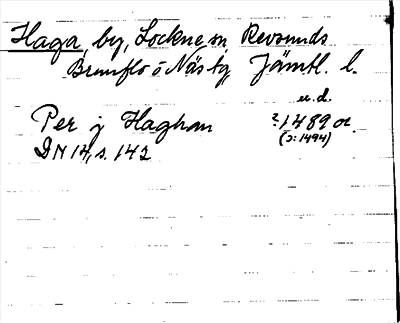 Haga, by, Lockne sn Revsunds
Brunflo o Näs tg, Jämtl. l.
u.d.
Per j Haghan ?1489 or.
(ɔ: 1494)
DN 14, s. 142